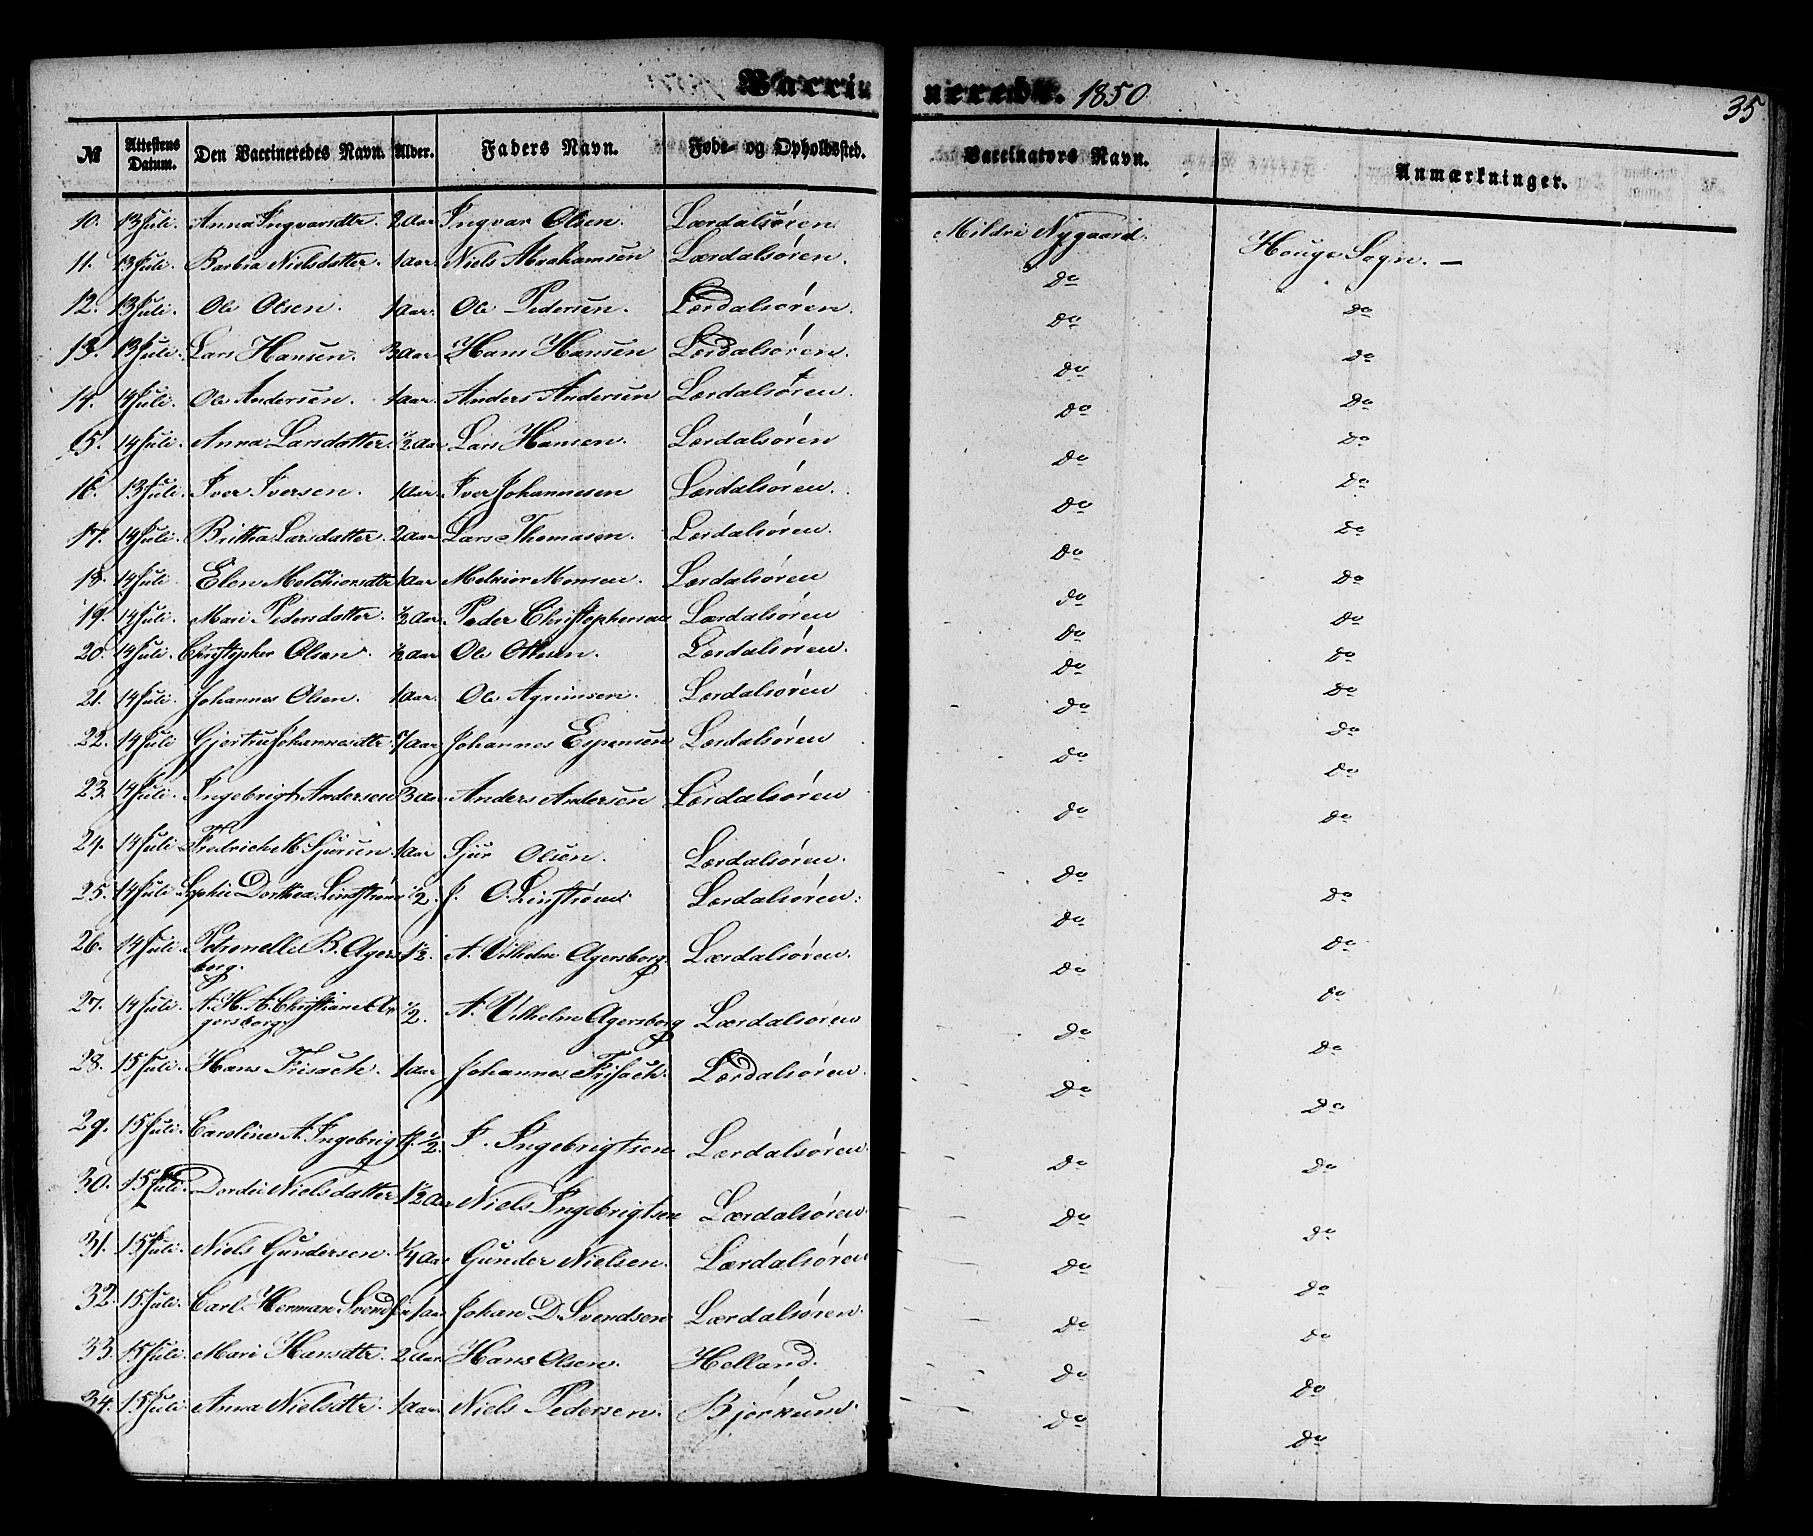 Vaccinerede. 1850
35
№ | Attestens Datum. | Den Vaccineredes Navn. | Alder. | Faders Navn. | Føde- og Opholdssted. | Vaccinators Navn. | Anmærkninger.
10. 13 Juli. Anna Ingvarsdtr. 2 Aar Ingvar Olsen. Lærdalsøren. Mildri Nygaard. Houge Sogn. —
11. 13 Juli. Barbra Nielsdatter. 1 Aar. Niels Abrahamsen Lærdalsøren. do do
12. 13 Juli. Ole Olsen. 1 Aar. Ole Pedersen. Lærdalsøren. do do
13. 13 Juli. Lars Hansen. 3 Aar Hans Hansen Lærdalsøren. do do
14. 14 Juli. Ole Andersen. 1 Aar. Anders Andersen Lærdalsøren. do do
15. 14 Juli. Anna Larsdatter. 1/2 Aar Lars Hansen. Lærdalsøren do do
16. 13 Juli. Iver Iversen. 1 Aar. Iver Johannesen Lærdalsøren. do do
17. 14 Juli. Brittha Larsdatter. 2 Aar Lars Thomasen. Lærdalsøren. do do
18. 14 Juli. Elen Melchiorsdtr 1 Aar Melkior Monsen. Lærdalsøren do do
19. 14 Juli. Mari Pedersdatter. 1/2 Aar Peder Christophersen Lærdalsøren do do
20. 14 Juli. Christopher Olsen. 1/2 Aar Ole Olsen. Lærdalsøren. do do
21. 14 Juli. Johannes Olsen. 1 Aar. Ole Lærdalsøren do do
22. 14 Juli Gjertru Johannesdtr. Aar Johannes Espensen Lærdalsøren do do
23. 14 Juli. Ingebrigt Andersen 3 Aar Anders Andersen Lærdalsøren do do
24. 14 Juli Fredrich M. Sjursen. 1 Aar Sjur Olsen. Lærdalsøren. do do
25. 14 Juli Sophie Dorthea Linstrøm 1/2. J. O. Linstrøm. Lærdalsøren. do do
26. 14 Juli. Petronelle B. Agers 1 1/2. A. Vilhelm Agersborg. Lærdalsøren. do do
borg.
27. 14 Juli. A. H. A. Christiane A 1/2. A. Vilhelm Agersborg Lærdalsøren do do
gersborg
28. 15 Juli. Hans Frisach. 1 Aar Johannes Frisach. Lærdalsøren. do do
29. 15 Juli. Caroline A. Ingebrigts. 1/2. F. Ingebrigtsen Lærdalsøren. do do
30. 15 Juli. Dordei Nielsdatter 1 1/2 Aar Niels Ingebrigtsen Lærdalsøren. do do
31. 15 Juli. Niels Gundersen. 1/4 Aar Gunder Nielsen. Lærdalsøren do do
32. 15 Juli. Carl Herman Svendsen 1 Aar Johan D. Svendsen Lærdalsøren. do do
33. 15 Juli. Mari Hansdtr. 2 Aar. Hans Olsen. Helland. do do
34. 15 Juli. Anna Nielsdtr. 1 Aar. Niels Pedersen. Bjørkum. do do